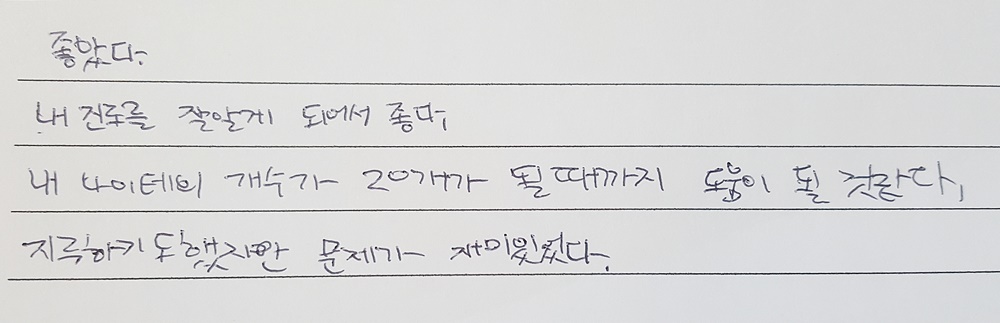 좋았다.
내 진로를 잘알게 되어서 좋다.
내 나이테의 개수가 20개가 될때까지 도움이 될 것같다.
지루하기도했지만 문제가 재미있었다.